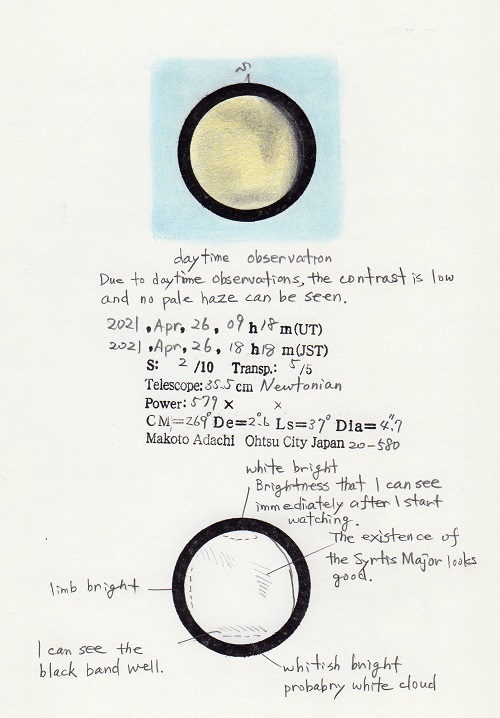 S
daytime observation
Due to daytime observations, the contrast is low
and no pale haze can be seen.
2021, Apr, 26, 09 h 18 m (UT)
2021, Apr, 26, 18 h 18 m (JST)
S: 2 /10 Transp.: 5/5
Telescope: 35.5 cm Newtonian
Power: 579 × ×
CM=269° De=2.°6 Ls=37° Dia=4."7
Makoto Adachi Ohtsu City Japan 20-580
white bright
Brightness that I can see
immediately after I start
watching.
The existence of
the Syrtis Major looks
good.
limb bright
I can see the
black band well.
whitish bright
probabry white cloud